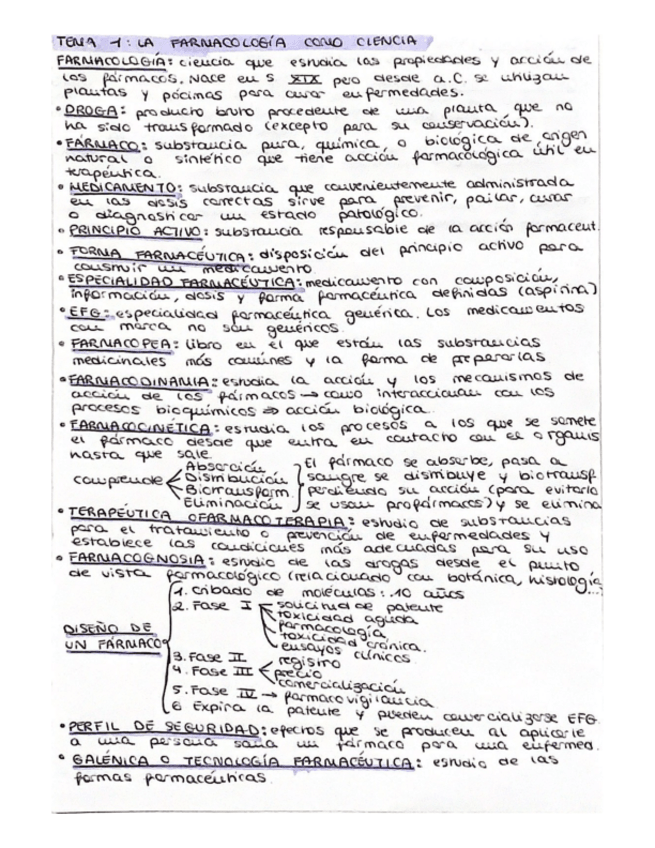 TEMA 1: LA FARMACOLOGÍA COMO CIENCIA
FARMACOLOGÍA: ciencia que estudia las propiedades y acción de
los fármacos. Nace en S XIX pero desde a.C. se utilizan
plantas y pócimas para curar enfermedades.
• DROGA: producto bruto procedente de una planta que no
ha sido transformado (excepto para su conservación).
• FÁRMACO: substancia pura, química, o biológica de origen
natural o sintético que tiene acción farmacológica útil en
terapéutica.
• MEDICAMENTO: substancia que convenientemente administrada
en las dosis correctas sirve para prevenir, paliar, curar
o diagnosticar un estado patológico.
• PRINCIPIO ACTIVO: substancia responsable de la acción farmaceut.
• FORMA FARMACÉUTICA: disposición del principio activo para
construir un medicamento.
• ESPECIALIDAD FARMACÉUTICA: medicamento con composición,
información, dosis y forma farmacéutica definidas (aspirina)
• EFG: especialidad farmacéutica genérica. Los medicamentos
con marca no son genéricos.
• FARMACOPEA: libro en el que están las substancias
medicinales más comunes y la forma de prepararlas
• FARMACODINAMIA: estudia la acción y los mecanismos de
acción de los fármacos → como interaccionan con los
procesos bioquímicos ⇒ acción biológica.
• FARMACOCINÉTICA: estudia los procesos a los que se somete
el fármaco desde que entra en contacto con el organis
hasta que sale.
comprende
Absorción
Distribución
Biotransform.
Eliminación
El fármaco se absorbe, pasa a
sangre se distribuye y biotransf.
perdiendo su acción (para evitarlo
se usan profármacos) y se elimina
• TERAPÉUTICA O FARMACOTERAPIA: estudio de substancias
para el tratamiento o prevención de enfermedades y
establece las condiciones más adecuadas para su uso
• FARMACOGNOSIA: estudio de las drogas desde el punto
de vista farmacológico (relacionado con botánica, histología
...)
DISEÑO DE
UN FÁRMACO
1. Cribado de moléculas: 10 años
2. Fase I
solicitud de patente
toxicidad aguda
farmacología
toxicidad crónica.
ensayos clínicos
3. Fase II
4. Fase III
registro
precio
comercialización
5. Fase IV → farmacovigilancia
6 Expira la patente y pueden comercializarse EFG.
• PERFIL DE SEGURIDAD: efectos que se producen al aplicarle
a una persona sana un fármaco para una enfermed.
• GALÉNICA O TECNOLOGÍA FARMACÉUTICA: estudio de las
formas farmacéuticas.